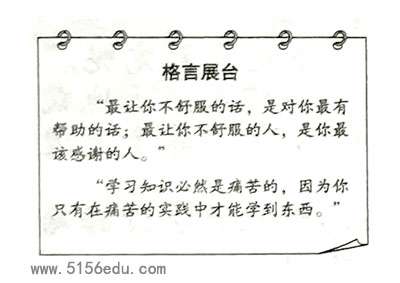 格言展台
“最让你不舒服的话，是对你最有
帮助的话；最让你不舒服的人，是你最
该感谢的人。”
“学习知识必然是痛苦的，因为你
只有在痛苦的实践中才能学到东西。”
www.5156edu.com